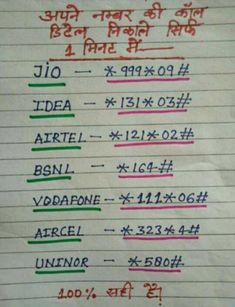 अपने नम्बर की कॉल
डिटेल निकाले सिर्फ
1 मिनट में—
JIO — *999*09#
IDEA — *131*03#
AIRTEL — *121*02#
BSNL — *164#
VODAFONE — *111*06#
AIRCEL — *323*4#
UNINOR — *580#
100% सही है।